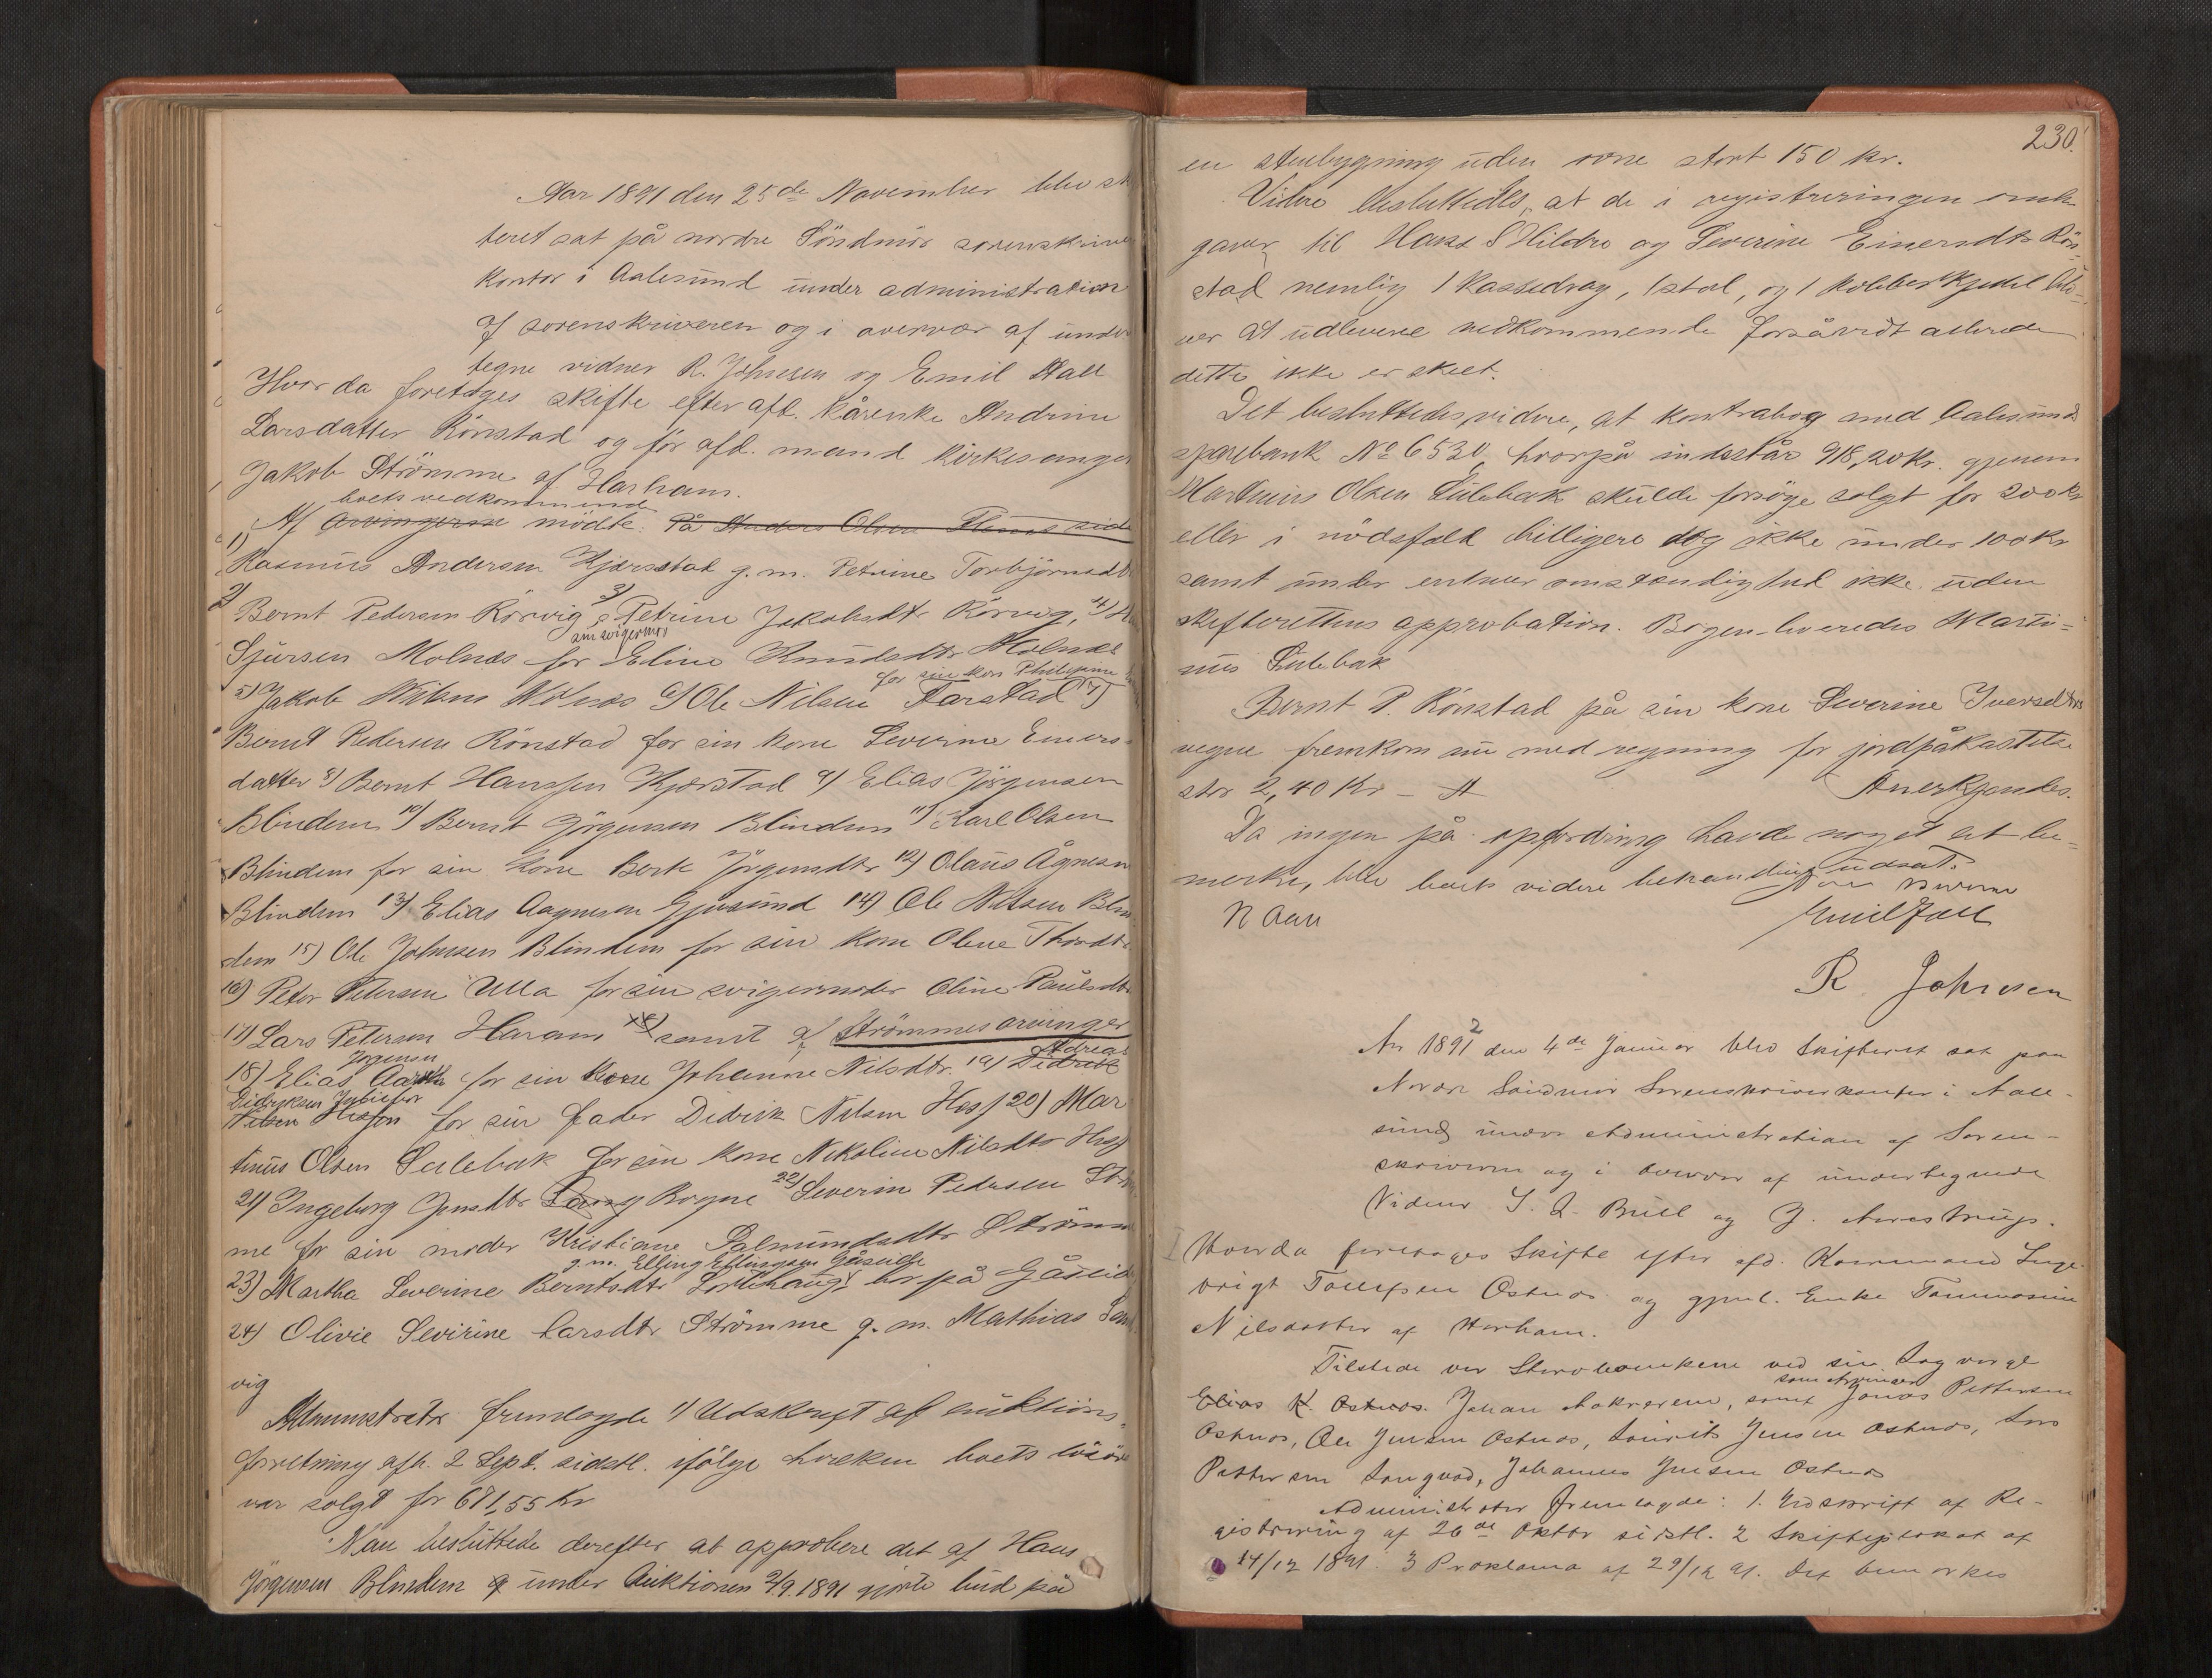 Aar 1891 den 25de November blev sk
teret sat på nordre Söndmör sorenskrive
kontor i Aalesund under administration
af sorenskriveren og i overvær af under
tegne vidner R. Johnsen og Emil Fall
Hvor da foretoges skifte efter afd. kårenke Andrine
Larsdatter Rönstad og for afd. mand kirkesanger
Jakob Strömme af Harham.
boets vedkommende
Af arvingerne mödte. På Anders Olsen
1) Rasmus Andersen Kjærstad g.m. Petrine Torbjörnsdt
2) Bernt Pedersen Rörvig 3) Petrine Jakobsdtr Rörvig, 4)
sin svigermor
Sjursen Molnæs for Eline Knudsdtr Molnæs
for sin kone Philipine
5) Jakob Nilsen Molnæs 6) Ole Nilsen Farstad 7)
Bernt Pedersen Rönstad for sin kone Severine Einers-
datter 8) Bernt Hanssen Kjærstad 9) Elias Jörgensen
Blindem 10) Bernt Jörgensen Blindem 11) Karl Olsen
Blindem for sin kone Berte Jörgensdtr 12) Olaus Ågnesen
Blindem 13) Elias Aagnesen Gjøsund 14) Ole Nilsen Blin
dem 15) Ole Johnsen Blindem for sin kone Oline
16) Peter Petersen Ulla for sin svigermoder Oline Paulsdtr
17) Lars Petersen Haram samt af Strömmes arvinger
Jörgensen Andreas
18) Elias for sin kone Johanne Nilsdtr. 19) Didrik
Didriksen
Nilsen Hessen for sin fader Didrik Nilsen Hess 20) Mar
tinus Olsen Sulebak for sin kone Nikoline Nilsdtr Hess
21) Ingeborg Jensdtr Rogne 22) Severin Pedersen Ström
me for sin moder Kristiane Salmundsdtr Strömme
g.m. Elling Ellingsen Gåseide
23) Martha Severine Berntsdtr bor på Gåseid
24) Olivie Sevirine Larsdtr Strömme g.m. Mathias San
vig
Administrator fremlagde 1) Udskrift af auktions-
forretning afh. 2 Sept. sidstl. ifölge hvilken boets lösöre
var solgt for 671,55 Kr
Man besluttede derefter at approbere det af Hans
Jörgensen Blindem under Auktionen 2/9.1891 gjorte bud på
230.
en stuebygning uden ovne stort 150 kr.
Videre besluttedes, at de i registreringen
gaver til Hans S Hildre og Severine Einersdtr Rön-
stad nemlig 1 kassedrag, 1 stol, og 1 kobberkjedel bli-
ver at udlevere vedkommende forsåvidt allerede
dette ikke er skeet.
Det besluttedes videre, at kontrabog med Aalesunds
sparebank No 6530, hvorpå indstår 918,20 kr. gjenem
Martinus Olsen Sulebak skulde forsöge solgt for 200 kr
eller i nödsfald billigere dog ikke under 100 kr
samt under enhver omstændighed ikke uden
skifterettens approbation. Bogen leveredes Marti-
nus Sulebak
Bernt P. Rönstad på sin kone Severine Iversdtrs
vegne fremkom nu med regning for jordpåkastelse
stor 2,40 Kr - Anerkjendes.
Da ingen på opfordring havde noget at be-
merke, blev boets videre behandling udsat.
N Aan
Emil Fall
R. Johnsen
Aar 1892 den 4de Januar blev Skifteret sat paa
Nordre Söndmör Sorenskriverkontor i Aale-
sund under Administration af Soren-
skriveren og i overvær af undertegnede
Vidner I. L. Bull og J. Aarestrup.
Hvorda foretoges Skifte efter afd. Kaarmand Inge-
brigt Tollefsen Østnæs og gjenl. Enke Tommasine
Nilsdatter af Harham.
Tilstede var Stervboenken ved sin Lagværge
som Arvinger
Elias K. Østnæs. Johan, samt Jonas Pettersen
Østnæs, Ole Jensen Østnæs, Laurits Jensen Østnæs, Lars
Pettersen Longvad, Johannes Jensen Østnæs
Administrator fremlagde: 1. Udskrift af Re-
gistrering af 26de Oktbr sidstl. 2 Skifteplakat af
14/12 1891. 3 Proklama af 29/12 91. Det bemærkes